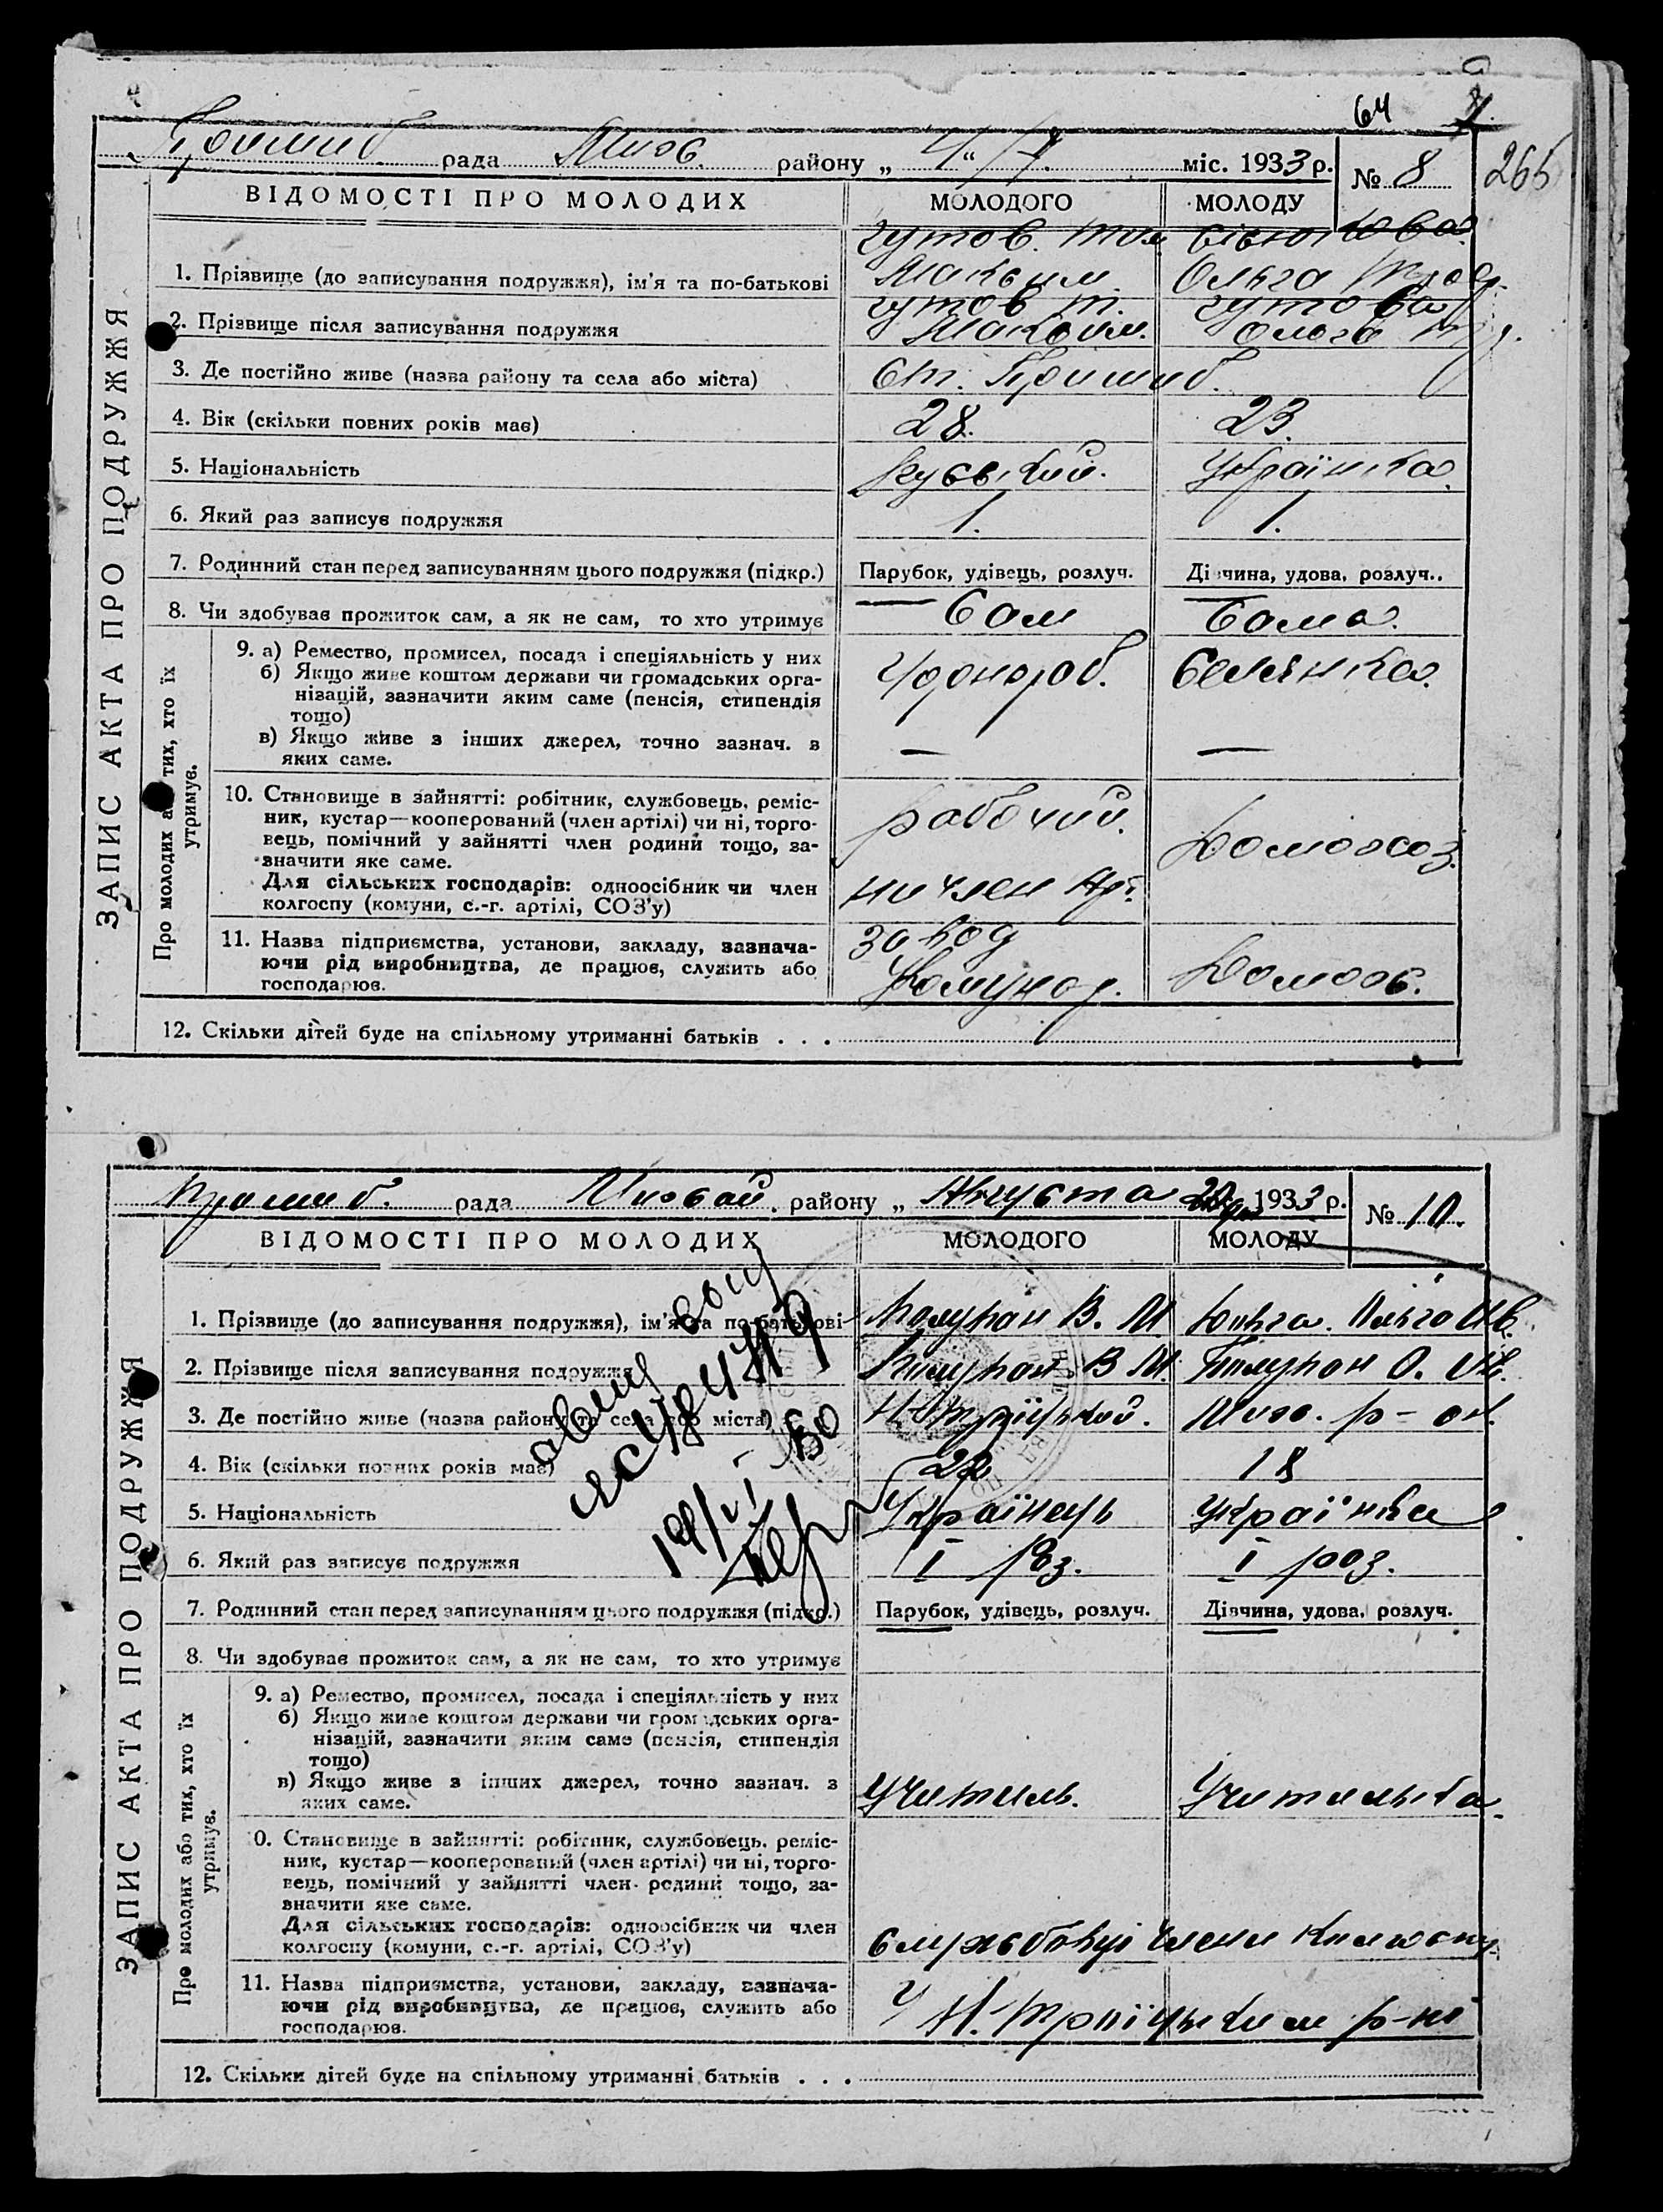 64
Пришиб рада Михс. району „ 4 “ міс. 1933 р. № 8
265
ВІДОМОСТІ ПРО МОЛОДИХ МОЛОДОГО МОЛОДУ
ЗАПИС АКТА ПРО ПОДРУЖЖЯ
1. Прізвище (до записування подружжя), ім'я та по-батькові Гутов. Максим Ольга
2. Прізвище після записування подружжя Гутов Т. Максим. Гутова Ольга
3. Де постійно живе (назва району та села або міста) Ст. Пришиб.
4. Вік (скільки повних років має) 28. 23.
5. Національність Руський. Українка.
6. Який раз записує подружжя 1. 1.
7. Родинний стан перед записуванням цього подружжя (підкр.) Парубок, удівець, розлуч. Дівчина, удова, розлуч..
8. Чи здобуває прожиток сам, а як не сам, то хто утримує Сам Сама.
Про молодих або тих, хто їх утримує.
9. а) Ремество, промисел, посада і спеціяльність у них Чорнороб. Селянка.
б) Якщо живе коштом держави чи громадських орга-
нізацій, зазначити яким саме (пенсія, стипендія
тощо)
в) Якщо живе з інших джерел, точно зазнач. з — —
яких саме.
10. Становище в зайнятті: робітник, службовець, реміс- рабочий. Домохоз.
ник, кустар—кооперований (член артілі) чи ні, торго-
вець, помічний у зайнятті член родини тощо, за-
значити яке саме.
Для сільських господарів: одноосібник чи член ни член Арт.
колгоспу (комуни, с.-г. артілі, СОЗ'у)
11. Назва підприємства, установи, закладу, зазнача- завод
ючи рід виробництва, де працює, служить або Комунар. Домогос.
господарює.
12. Скільки дітей буде на спільному утриманні батьків . . .
Пришиб. рада району „ Августа 20 дня 1933 р. № 10.
ВІДОМОСТІ ПРО МОЛОДИХ МОЛОДОГО МОЛОДУ
ЗАПИС АКТА ПРО ПОДРУЖЖЯ
1. Прізвище (до записування подружжя), ім'я та по-батькові В. М. Ольга Ив.
2. Прізвище після записування подружжя В М. О. Ив.
3. Де постійно живе (назва району та села або міста) Н-Троїцький. Михо. р-он.
4. Вік (скільки повних років має) 22 18
5. Національність Українець Українка
6. Який раз записує подружжя I раз. I раз.
7. Родинний стан перед записуванням цього подружжя (підкр.) Парубок, удівець, розлуч. Дівчина, удова, розлуч.
8. Чи здобуває прожиток сам, а як не сам, то хто утримує
Про молодих або тих, хто їх утримує.
9. а) Ремество, промисел, посада і спеціяльність у них
б) Якщо живе коштом держави чи громадських орга-
нізацій, зазначити яким саме (пенсія, стипендія
тощо)
в) Якщо живе з інших джерел, точно зазнач. з Учитель. Учителька.
яких саме.
10. Становище в зайнятті: робітник, службовець, реміс-
ник, кустар—кооперований (член артілі) чи ні, торго-
вець, помічний у зайнятті член родини тощо, за-
значити яке саме.
Для сільських господарів: одноосібник чи член
колгоспу (комуни, с.-г. артілі, СОЗ'у) службовці члени
11. Назва підприємства, установи, закладу, зазнача-
ючи рід виробництва, де працює, служить або У Н.-Троїцьким р-ні
господарює.
12. Скільки дітей буде на спільному утриманні батьків . . .